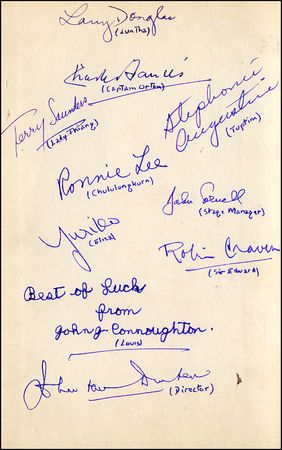 Larry Douglas
(Lun Tha)
Charles Francis
(Captain Orton)
Terry Saunders
(Lady Thiang)
Stephanie
Augustine
(Tuptim)
Ronnie Lee
(Chululongkorn)
John
(Stage Manager)
Yuriko
(Eliza)
Robin Craven
(Sir Edward)
Best of Luck
from
John J. Connoughton.
(Louis)
John van Druten
(Director)